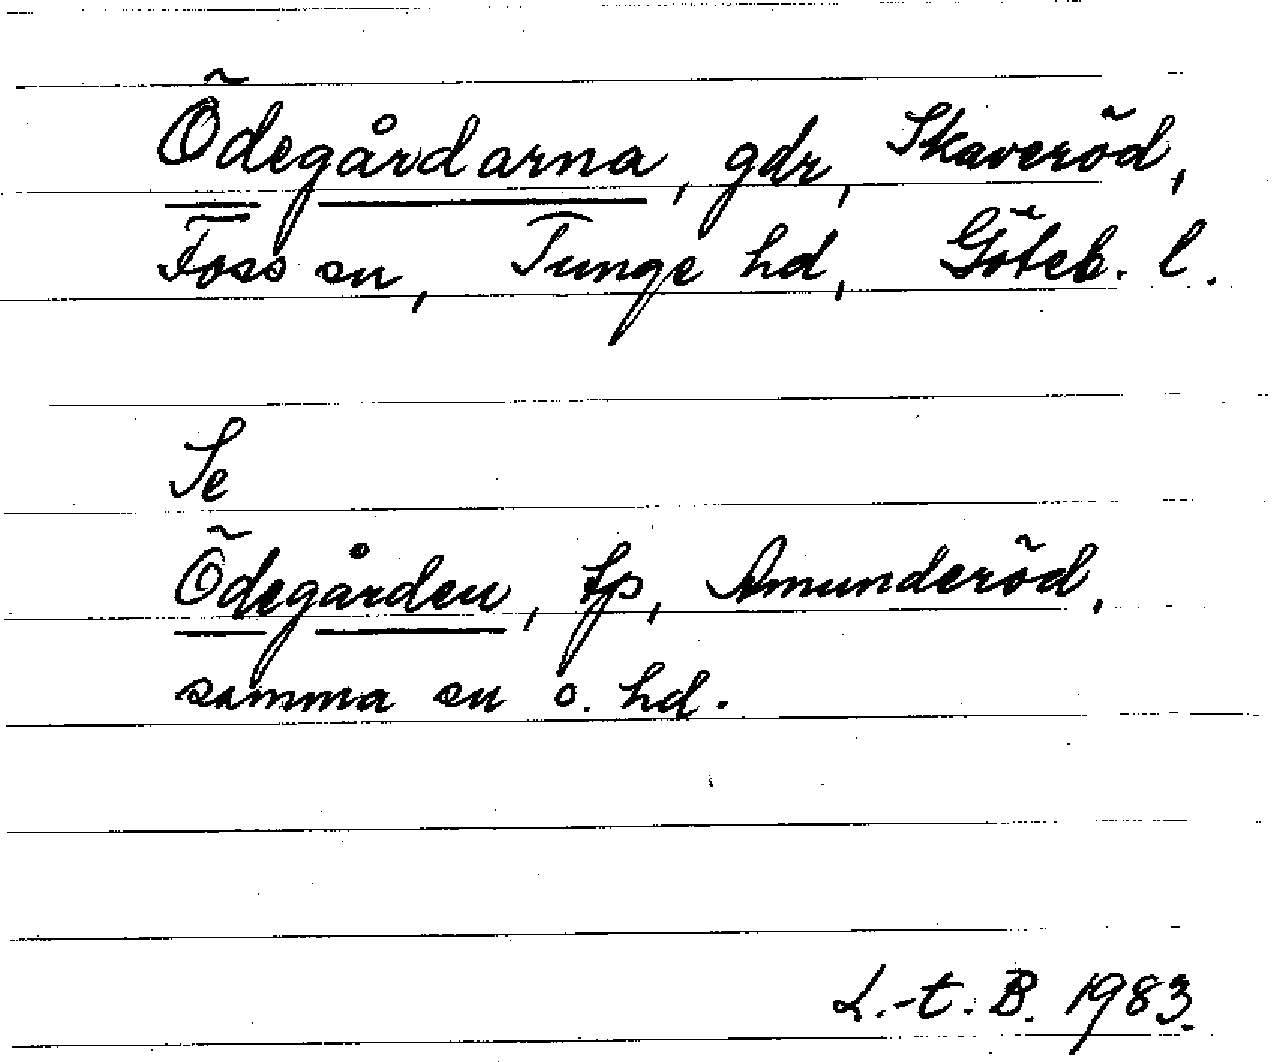 Ödegårdarna, gdr, Skaveröd,
Foss sn, Tunge hd, Göteb. l.
Se
Ödegården, tp, Amunderöd,
samma sn o. hd.
L.-t. B. 1983.